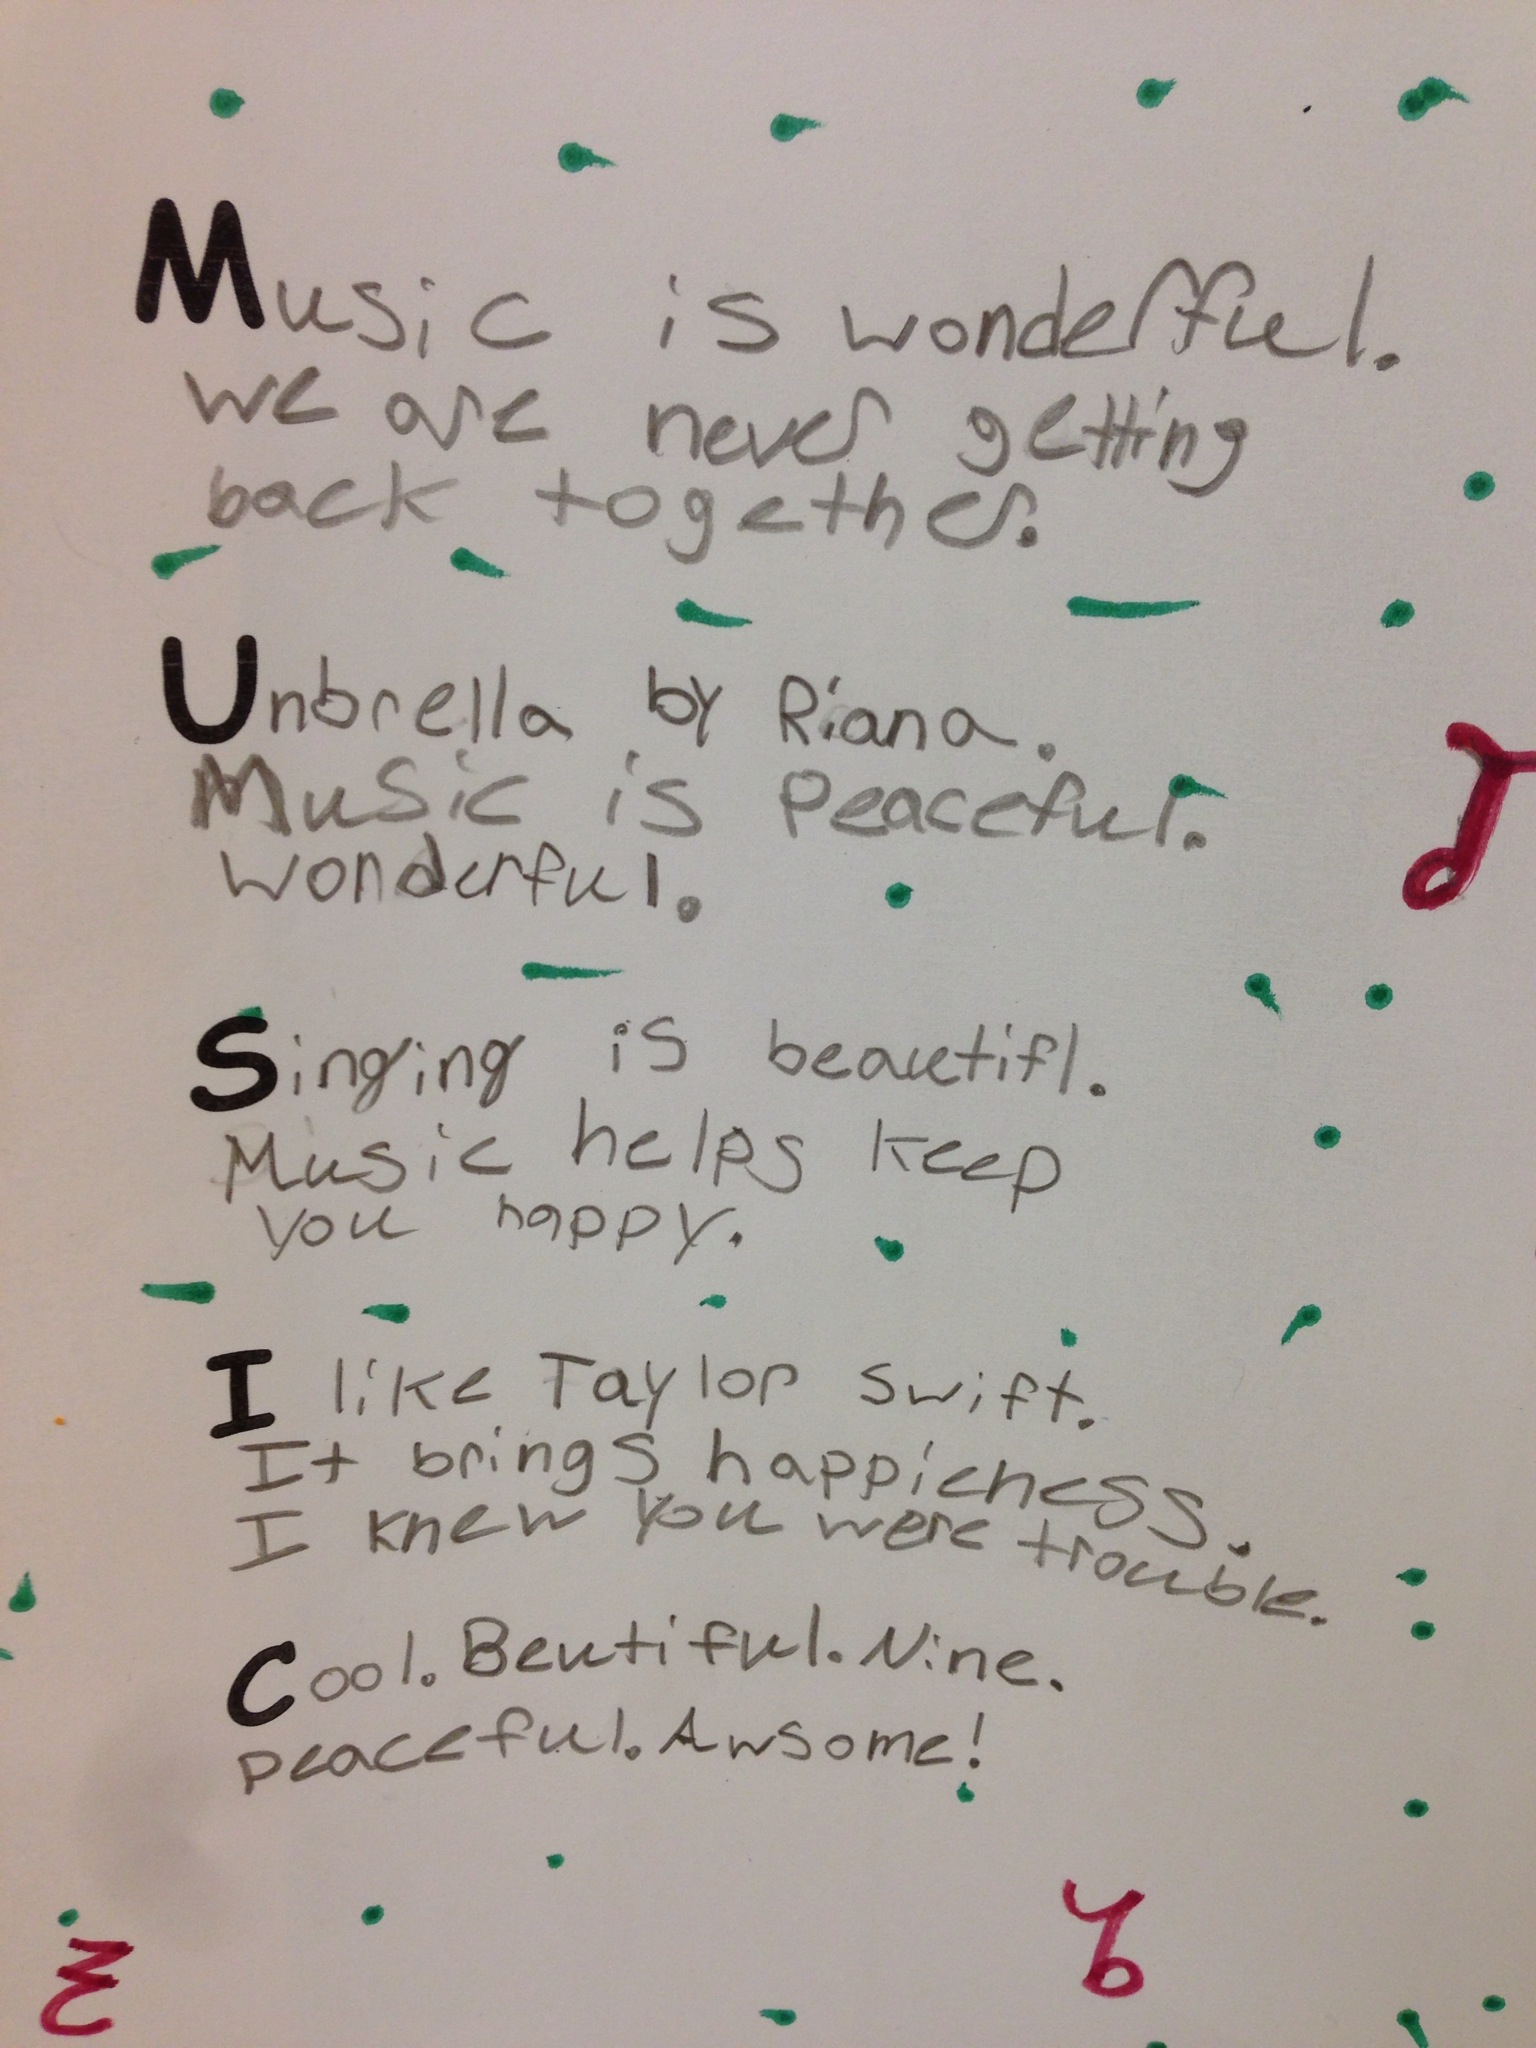 Music is wonderful.
we are never getting
back together.
Unbrella by Riana.
Music is Peaceful.
wonderful.
Singing is beautifl.
Music helps keep
you happy.
I like Taylor swift.
It brings happieness.
I knew you were trouble.
Cool. Beutiful. Nine.
peaceful. Awsome!